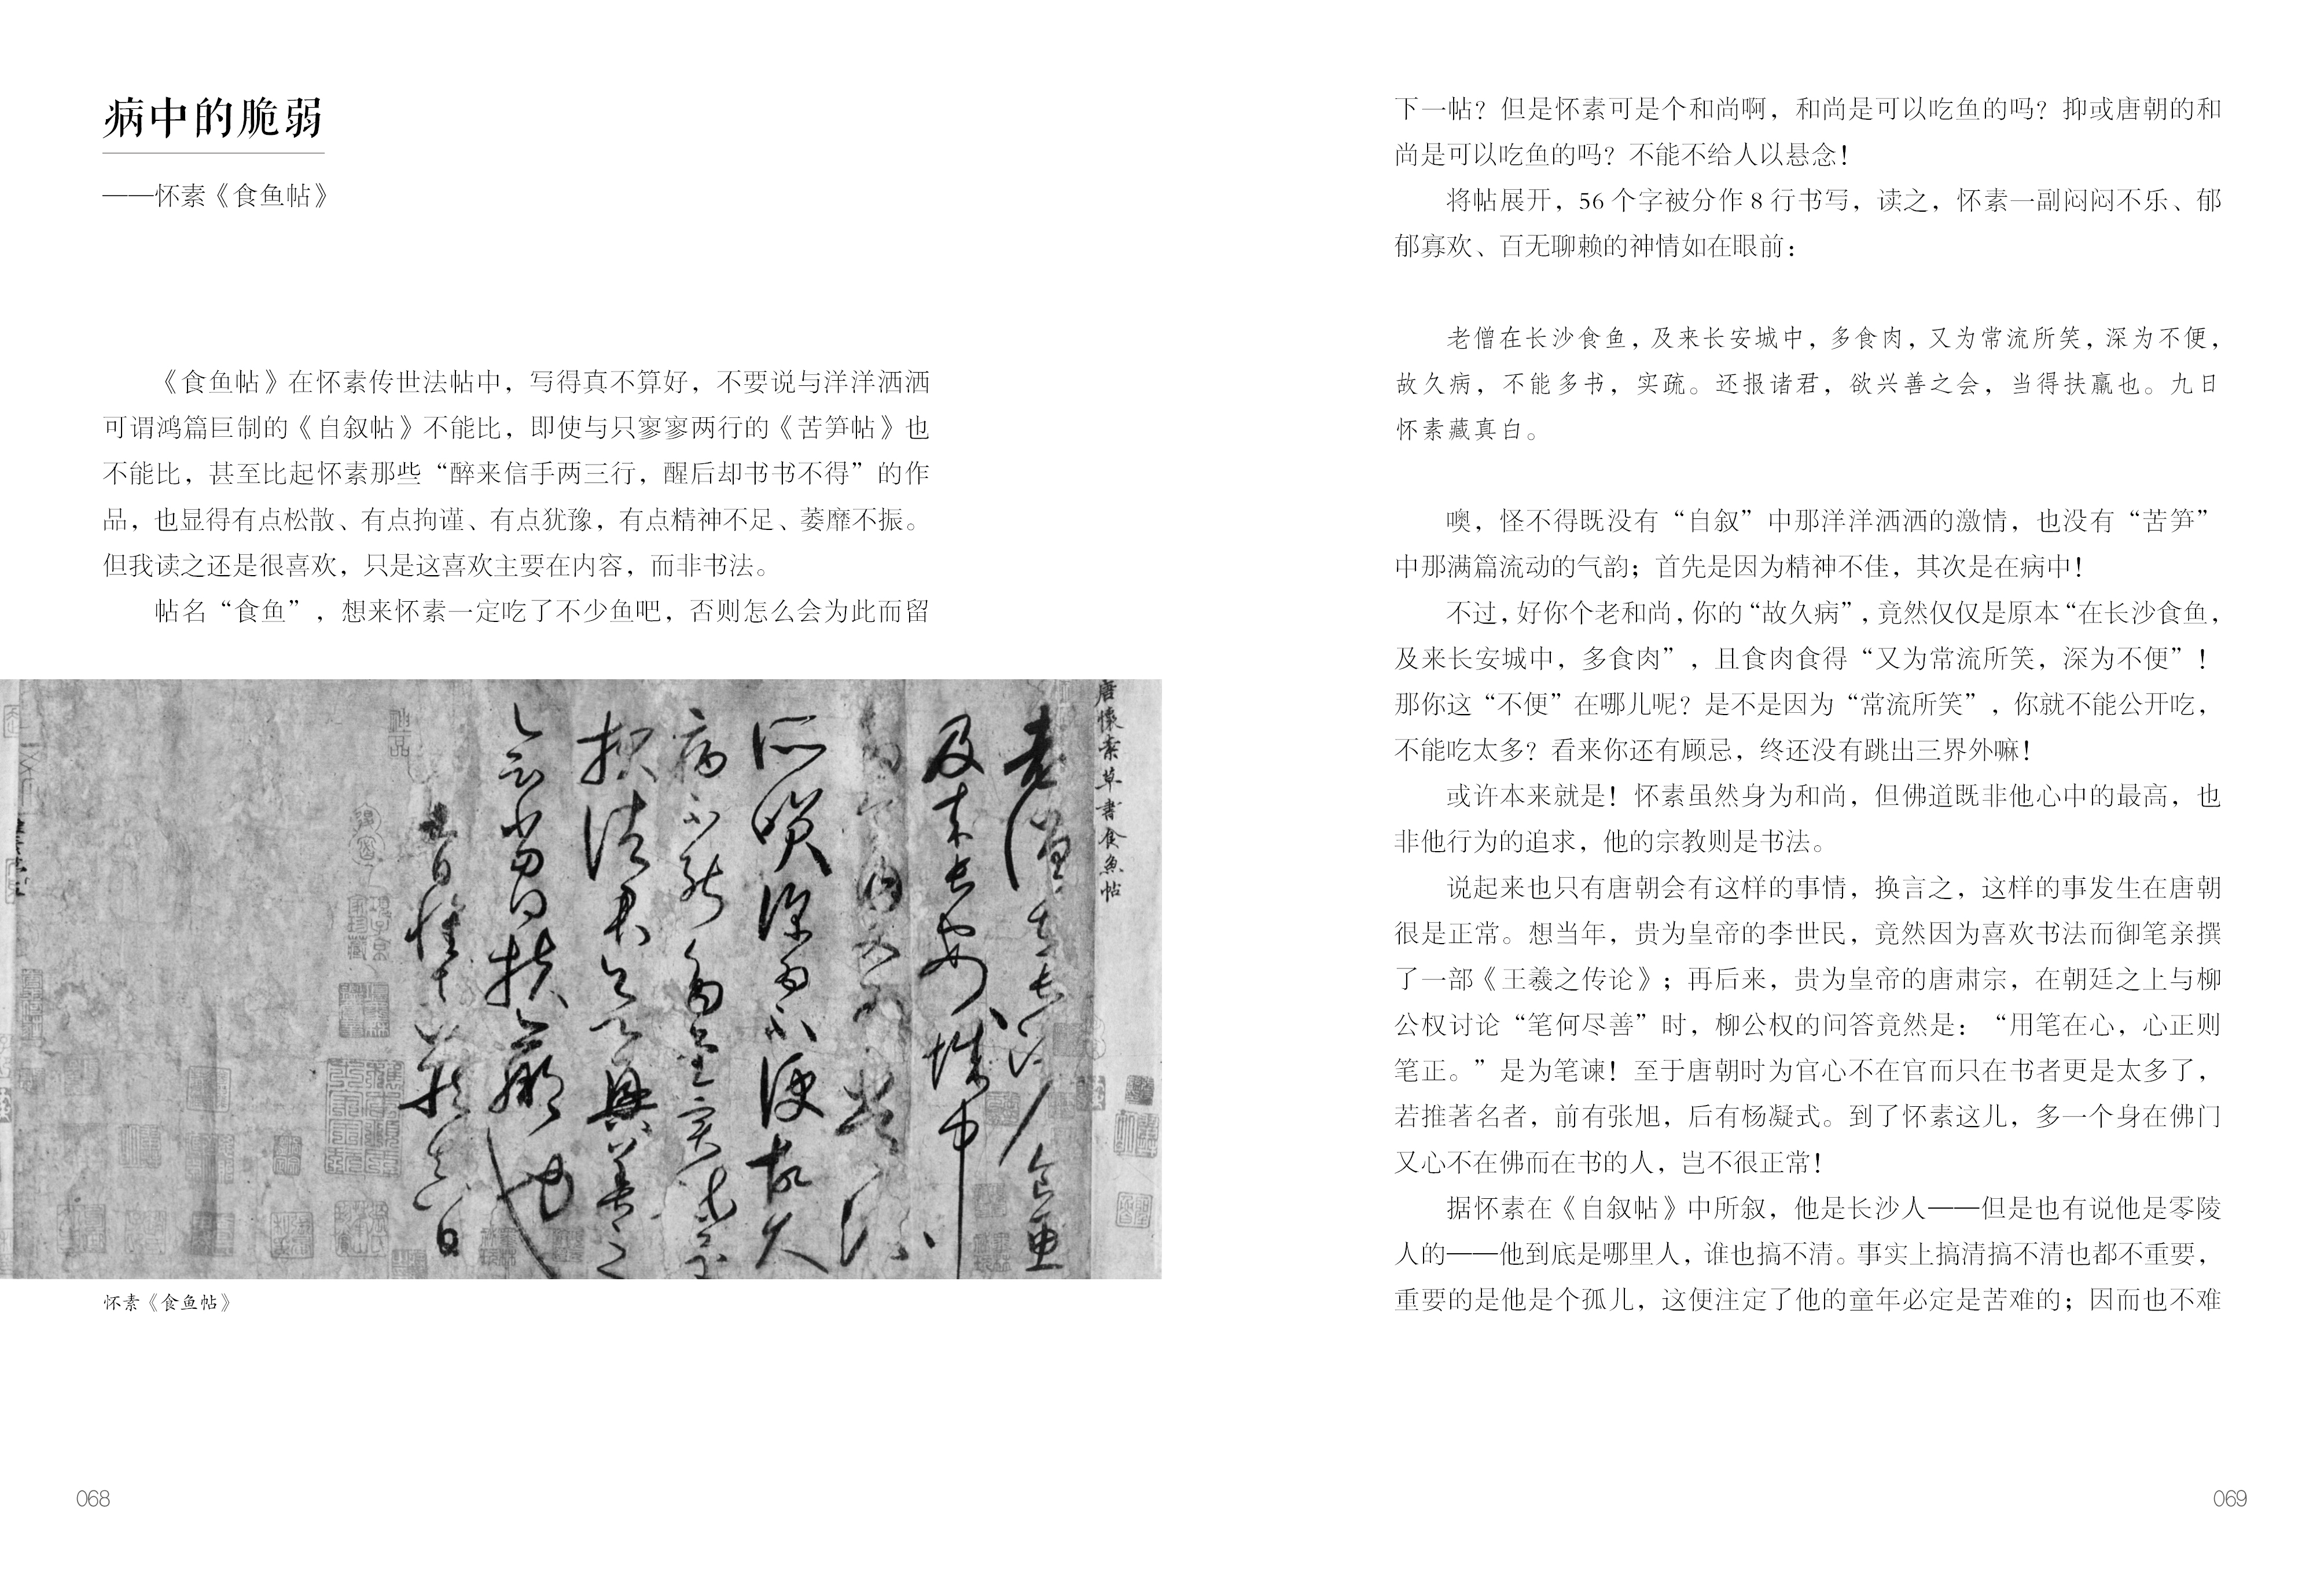 病中的脆弱
——怀素《食鱼帖》
《食鱼帖》在怀素传世法帖中，写得真不算好，不要说与洋洋洒洒
可谓鸿篇巨制的《自叙帖》不能比，即使与只寥寥两行的《苦笋帖》也
不能比，甚至比起怀素那些“醉来信手两三行，醒后却书书不得”的作
品，也显得有点松散、有点拘谨、有点犹豫，有点精神不足、萎靡不振。
但我读之还是很喜欢，只是这喜欢主要在内容，而非书法。
帖名“食鱼”，想来怀素一定吃了不少鱼吧，否则怎么会为此而留
唐懷素草書食魚帖
老僧在長沙食魚
及来長安城中
多食肉又為常流
所笑深為不便故久
病不能多書實疏
還報諸君欲興善之
會當得扶羸也
九日懷素藏真白
怀素《食鱼帖》
068
下一帖？但是怀素可是个和尚啊，和尚是可以吃鱼的吗？抑或唐朝的和
尚是可以吃鱼的吗？不能不给人以悬念！
将帖展开，56 个字被分作 8 行书写，读之，怀素一副闷闷不乐、郁
郁寡欢、百无聊赖的神情如在眼前：
老僧在长沙食鱼，及来长安城中，多食肉，又为常流所笑，深为不便，
故久病，不能多书，实疏。还报诸君，欲兴善之会，当得扶羸也。九日
怀素藏真白。
噢，怪不得既没有“自叙”中那洋洋洒洒的激情，也没有“苦笋”
中那满篇流动的气韵；首先是因为精神不佳，其次是在病中！
不过，好你个老和尚，你的“故久病”，竟然仅仅是原本“在长沙食鱼，
及来长安城中，多食肉”，且食肉食得“又为常流所笑，深为不便”！
那你这“不便”在哪儿呢？是不是因为“常流所笑”，你就不能公开吃，
不能吃太多？看来你还有顾忌，终还没有跳出三界外嘛！
或许本来就是！怀素虽然身为和尚，但佛道既非他心中的最高，也
非他行为的追求，他的宗教则是书法。
说起来也只有唐朝会有这样的事情，换言之，这样的事发生在唐朝
很是正常。想当年，贵为皇帝的李世民，竟然因为喜欢书法而御笔亲撰
了一部《王羲之传论》；再后来，贵为皇帝的唐肃宗，在朝廷之上与柳
公权讨论“笔何尽善”时，柳公权的问答竟然是：“用笔在心，心正则
笔正。”是为笔谏！至于唐朝时为官心不在官而只在书者更是太多了，
若推著名者，前有张旭，后有杨凝式。到了怀素这儿，多一个身在佛门
又心不在佛而在书的人，岂不很正常！
据怀素在《自叙帖》中所叙，他是长沙人——但是也有说他是零陵
人的——他到底是哪里人，谁也搞不清。事实上搞清搞不清也都不重要，
重要的是他是个孤儿，这便注定了他的童年必定是苦难的；因而也不难
069